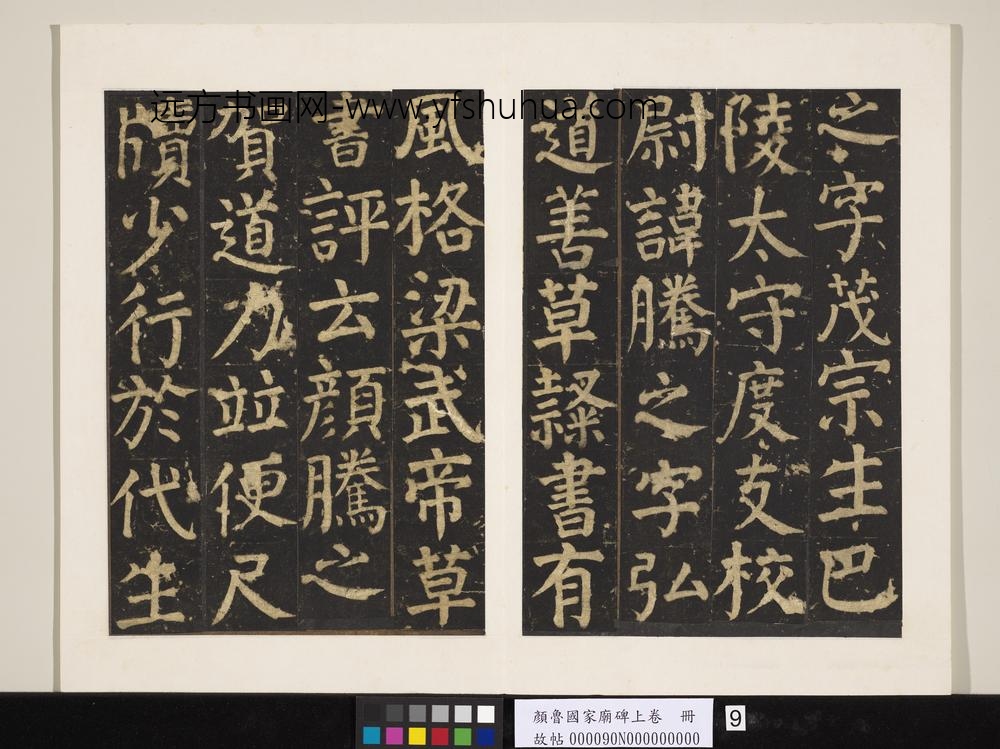 之字茂宗生巴
陵太守度支校
尉諱騰之字弘
道善草隸書有
風格梁武帝草
書評云顏騰之
賀道力並便尺
牘少行於代生
远方书画网-www.yfshuhua.com
顏魯國家廟碑上卷 冊
故帖 000090N000000000
9